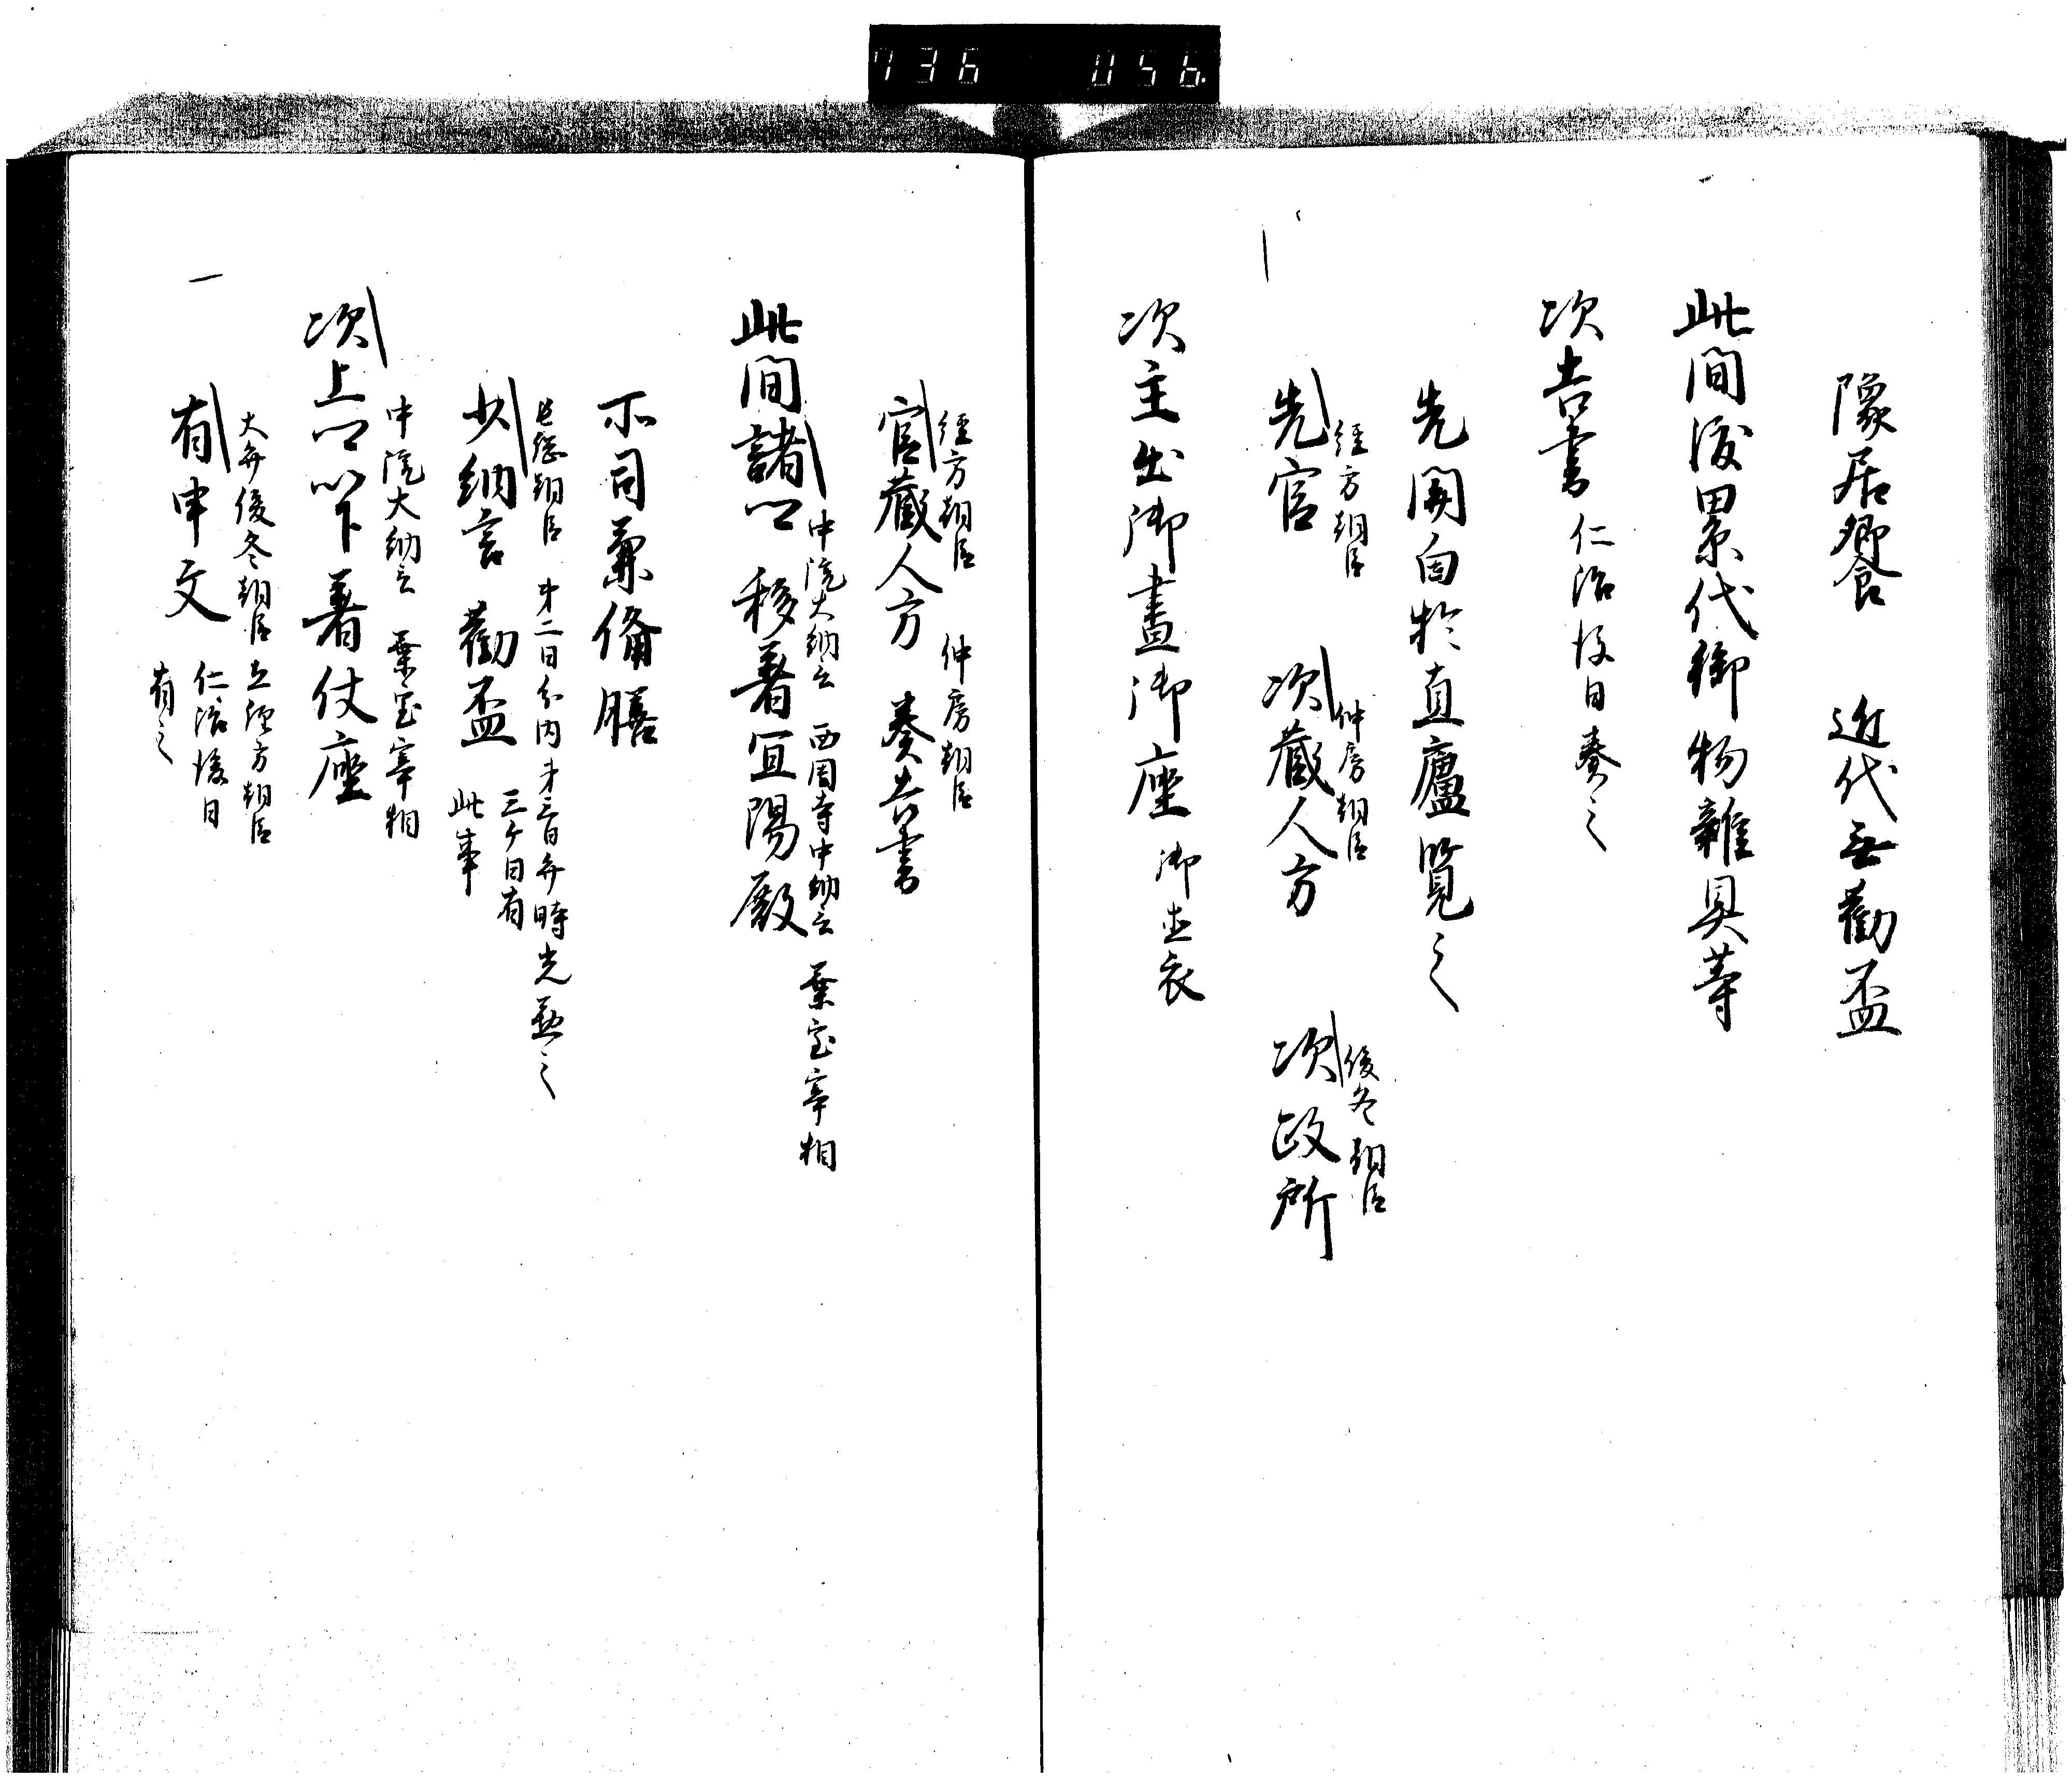 736 056
豫居饗　近代無勸盃
此間渡累代御物雜具等
次吉書 仁治後日奏之
先関白於直廬覧之
経方朝臣　仲房朝臣　俊冬朝臣
先官　次蔵人方　次政所
次主上出御晝御座 御直衣
経方朝臣　仲房朝臣
官蔵人方　奏吉書
中院大納言　西園寺中納言　葉室宰相
此間諸卿移著宜陽殿
所司兼備膳
長綱朝臣　第二日分内第三日弁時光
少納言勸盃　三ケ日有此事
中院大納言　葉室宰相
次上卿以下著仗座
大弁俊冬朝臣　経方朝臣
有申文　仁治後日有之